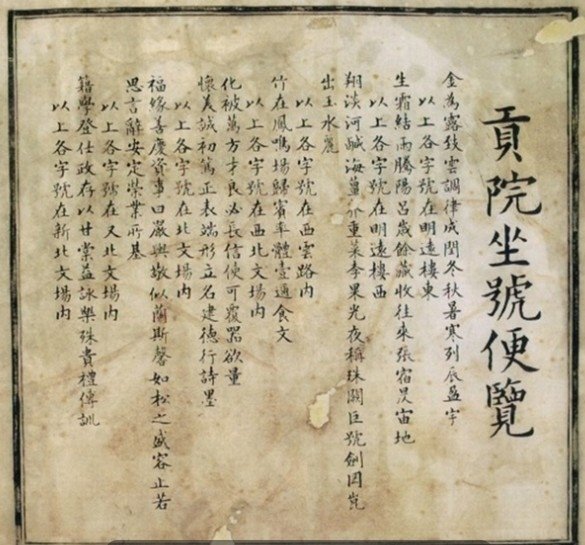 貢院坐號便覽
金為露致雲調律成閏冬秋暑寒列辰盈宇
以上各字號在明遠樓東
生霜結雨騰陽呂歲餘藏收往來張宿昃宙地
以上各字號在明遠樓西
翔淡河鹹海薑芥重菜李果光夜稱珠闕巨號劍岡崑
出玉水麗
以上各字號在西雲路內
竹在鳳鳴場歸賓率體壹食文
以上各字號在西北文場內
化被萬方才良必長信使可覆器欲量
懷美誠初篤正表端形立名建德行詩墨
以上各字號在北文場內
福緣善慶資事曰嚴與敬似蘭斯馨如松之盛容止若
思言辭安定榮業所基
以上各字號在又北文場內
籍學登仕政存以甘棠益詠樂殊貴禮傅訓
以上各字號在新北文場內